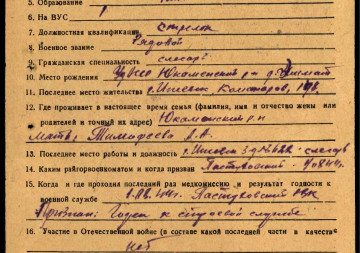 5. Образование
6. На ВУС
7. Должностная квалификация стрелок
8. Военное звание Рядовой
9. Гражданская специальность слесарь
10. Место рождения Юкаменский р-н
11. Последнее место жительства г. Ижевск
12. Где проживает в настоящее время семья (фамилия, имя и отчество жены или
родителей и точный их адрес) Юкаменский р-н
мать Тимофеева
13. Последнее место работы и должность г. Ижевск слесарь
14. Каким райгорвоенкоматом и когда призван Пастуховский
15. Когда и где проходил последний раз медкомиссию и результат годности к
военной службе Пастуховский РВК
Признан: Годен к строевой службе
16. Участие в Отечественной войне (в составе какой последней части в качестве
нет